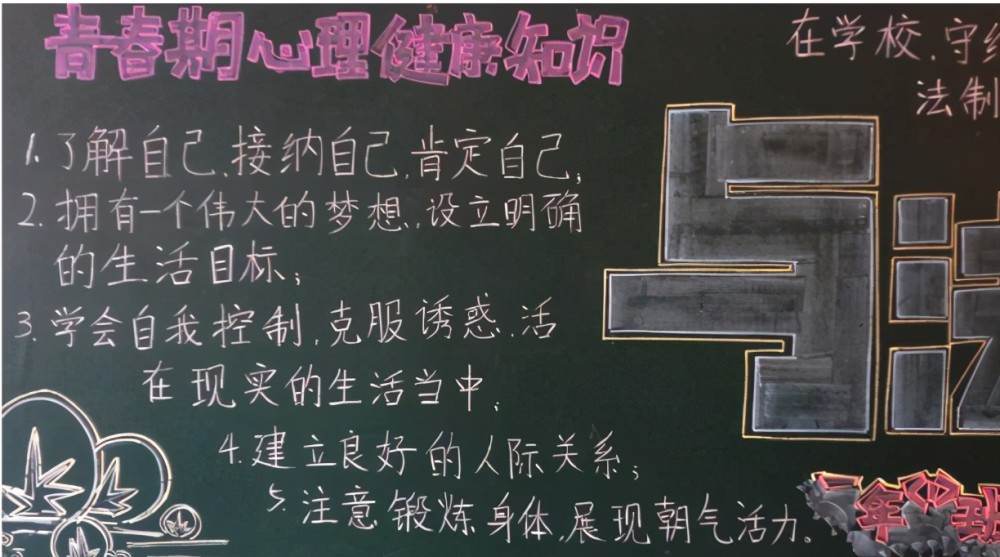 青春期心理健康知识
在学校,守
法制
1.了解自己、接纳自己,肯定自己;
2.拥有一个伟大的梦想,设立明确
的生活目标;
3.学会自我控制,克服诱惑,活
在现实的生活当中;
4.建立良好的人际关系;
5.注意锻炼身体,展现朝气活力。
与法
年 班